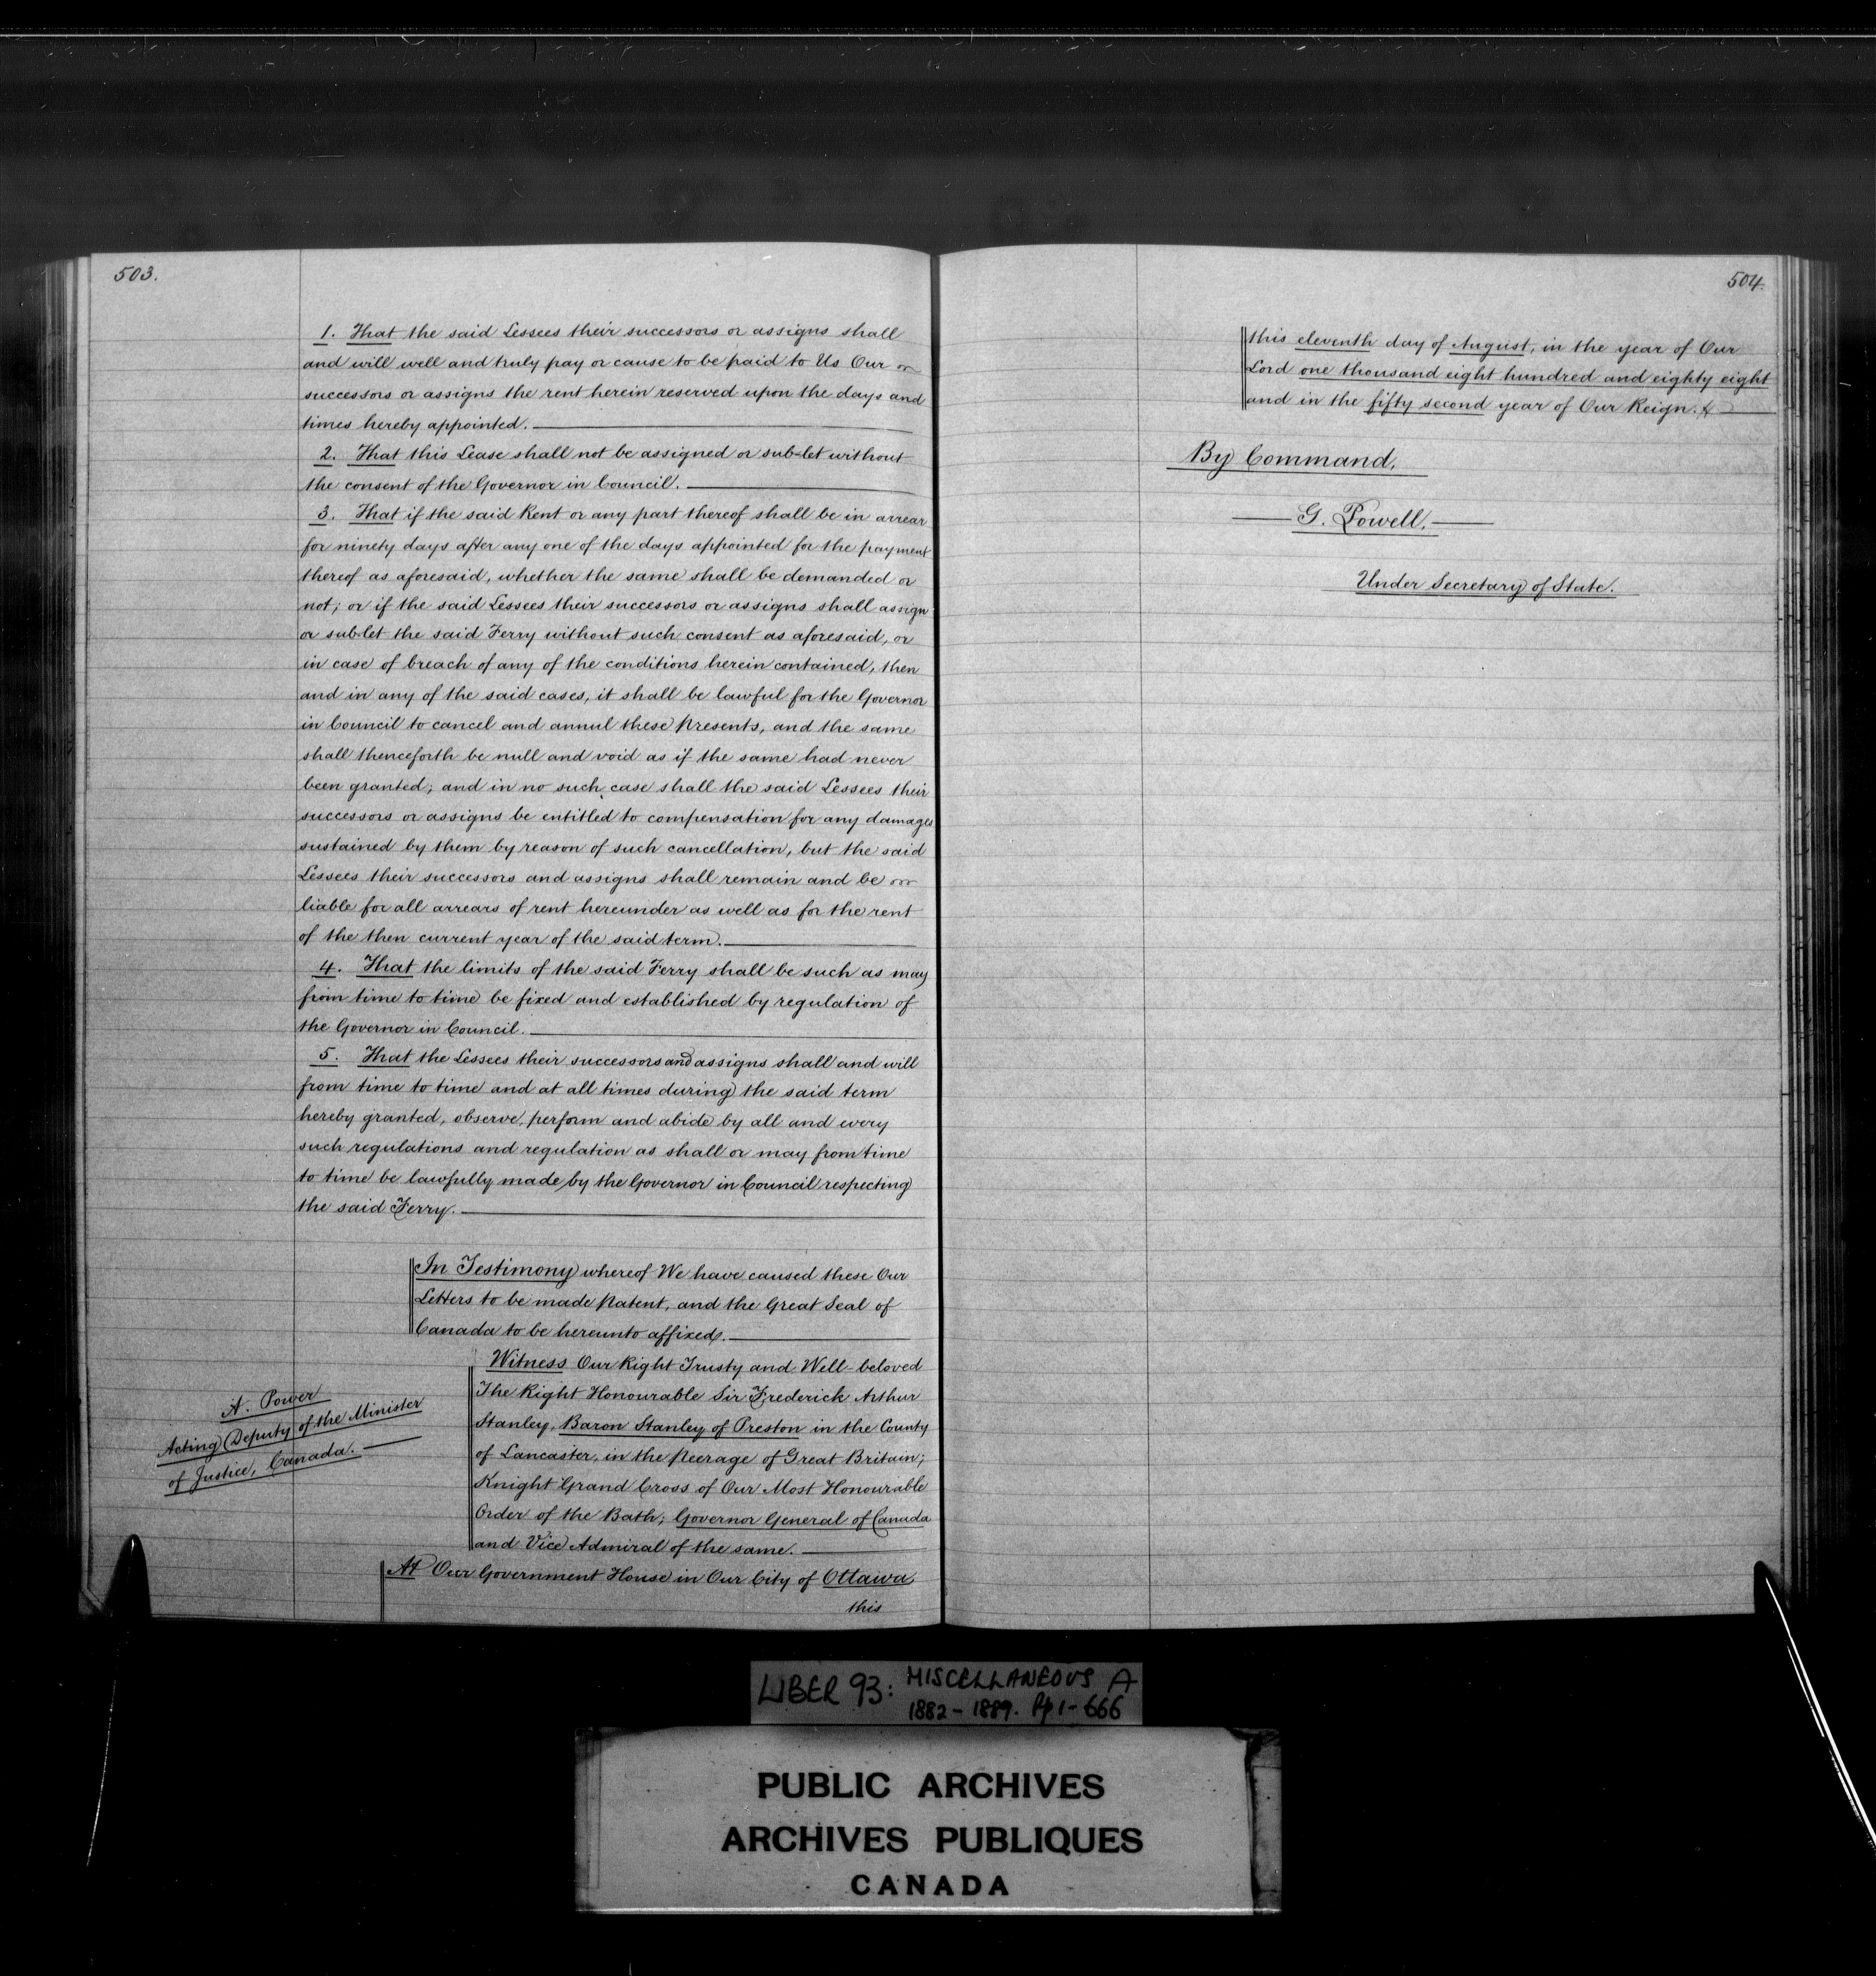 503.
1. That the said Lessees their successors or assigns shall
and will well and truly pay or cause to be paid to Us Our
successors or assigns the rent herein reserved upon the days and
times hereby appointed.
2. That this Lease shall not be assigned or sub-let without
the consent of the Governor in Council.
3. That if the said Rent or any part thereof shall be in arrear
for ninety days after any one of the days appointed for the payment
thereof as aforesaid, whether the same shall be demanded or
not; or if the said Lessees their successors or assigns shall assign
or sub-let the said Ferry without such consent as aforesaid, or
in case of breach of any of the conditions herein contained, then
and in any of the said cases, it shall be lawful for the Governor
in Council to cancel and annul these Presents, and the same
shall thenceforth be null and void as if the same had never
been granted; and in no such case shall the said Lessees their
successors or assigns be entitled to compensation for any damages
sustained by them by reason of such cancellation, but the said
Lessees their successors and assigns shall remain and be
liable for all arrears of rent hereunder as well as for the rent
of the then current year of the said term.
4. That the limits of the said Ferry shall be such as may
from time to time be fixed and established by regulation of
the Governor in Council.
5. That the Lessees their successors and assigns shall and will
from time to time and at all times during the said term
hereby granted, observe, perform and abide by all and every
such regulations and regulation as shall or may from time
to time be lawfully made by the Governor in Council respecting
the said Ferry.
In Testimony whereof We have caused these Our
Letters to be made Patent, and the Great Seal of
Canada to be hereunto affixed.
Witness Our Right Trusty and Well-beloved
The Right Honourable Sir Frederick Arthur
Stanley, Baron Stanley of Preston in the County
of Lancaster, in the Peerage of Great Britain;
Knight Grand Cross of Our Most Honourable
Order of the Bath; Governor General of Canada
and Vice Admiral of the same.
A. Power
Acting Deputy of the Minister
of Justice, Canada.
At Our Government House in Our City of Ottawa
this
504.
this eleventh day of August, in the year of Our
Lord one thousand eight hundred and eighty eight
and in the fifty second year of Our Reign.
By Command,
G. Powell,
Under Secretary of State.
LIBER 93: MISCELLANEOUS A
1882 - 1889. Pp 1 - 666
PUBLIC ARCHIVES
ARCHIVES PUBLIQUES
CANADA